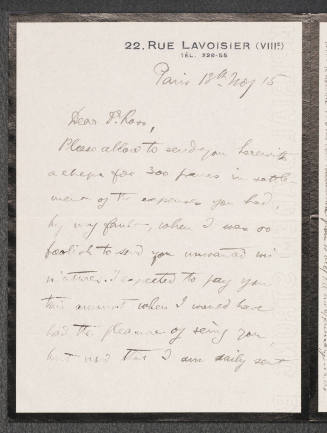 22. RUE LAVOISIER (VIIIe)
TÉL. 226-55
Paris 12th Nov 15
Dear Dr. Ross,
Please allow to send you herewith
a cheque for 300 francs in settle-
ment of the expenses you had,
by my fault, when I was so
foolish to send you unwanted mi-
niatures. I expected to pay you
this amount when I would have
had the pleasure of seing you,
but now that I am sadly sent